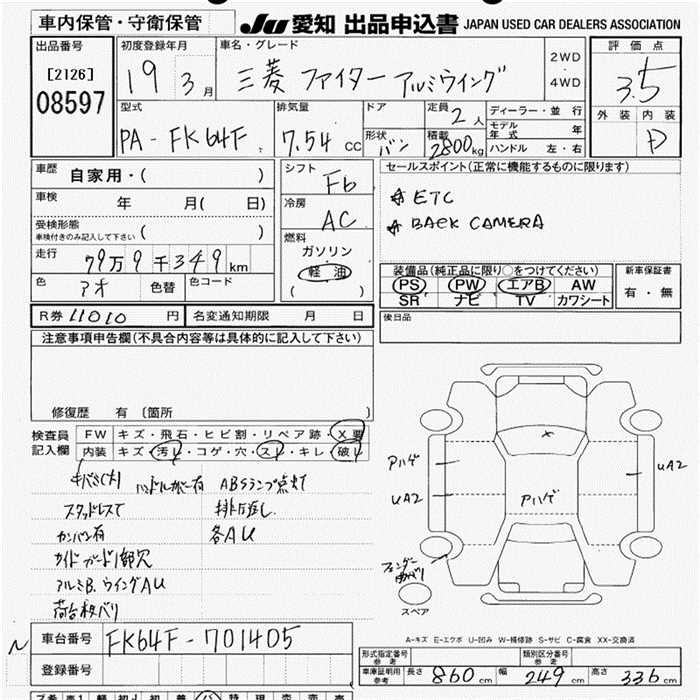 車内保管・守衛保管
JU 愛知 出品申込書 JAPAN USED CAR DEALERS ASSOCIATION
出品番号
[2126]
08597
初度登録年月
19 3月
車名・グレード
三菱 ファイター アルミウイング
2WD
4WD
評価点
3.5
外装 内装
D
型式
PA-FK64F
排気量
7.54 CC
ドア
形状 バン
定員 2人
積載 2800kg
ディーラー・並行
モデル年式 年
ハンドル 左・右
車歴 自家用・( )
車検 年 月( 日)
受検形態
車検付きのみ記入して下さい ( )
走行 79万9千349km
色 アオ 色替 色コード
シフト F6
冷房 AC
燃料
ガソリン
軽油
( )
セールスポイント(正常に機能するものに限ります)
☆ ETC
☆ BACK CAMERA
装備品(純正品に限り○をつけてください)
PS PW エアB AW
SR ナビ TV カワシート
新車保証書
有・無
R券 11010円 名変通知期限 月 日
後日品
注意事項申告欄(不具合内容等は具体的に記入して下さい)
修復歴 有 〔箇所 〕
検査員記入欄
FW キズ・飛石・ヒビ割・リペア跡・X要
内装 キズ・汚レ・コゲ・穴・スレ・キレ・破レ
キバミ(大) ハンドルカバー有 ABSランプ点灯
スタッドレス 排ガス戻し
カンバン有 各AU
サイドガード1部欠
アルミB. ウイングAU
荷台板バリ
アハゲ
UA2
UA2
アハゲ
フェンダー
スペア
A-キズ E-エクボ U-凹み W-補修跡 S-サビ C-腐食 XX-交換済
車台番号 FK64F-701405
登録番号
型式指定番号 参考
類別区分番号 参考
車庫証明用 参考 長さ 860cm 幅 249cm 高さ 336cm